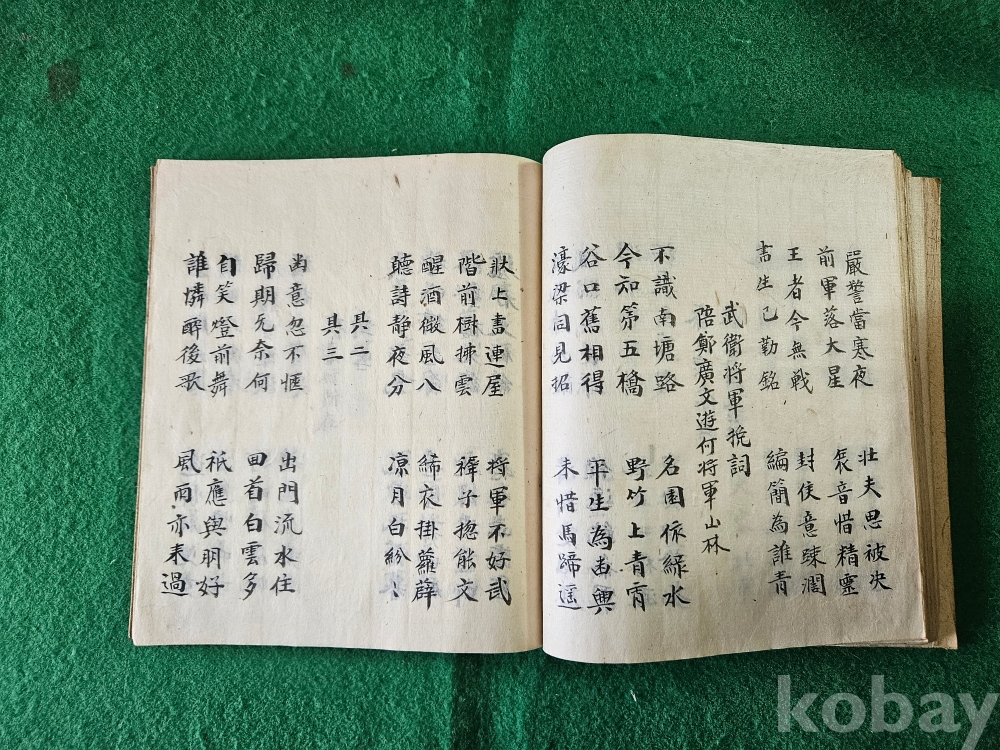 嚴警當寒夜 壯夫思被决
前軍落大星 哀音惜精靈
王者今無戰 封侯意踈濶
書生已勤銘 編簡為誰青
武衛將軍挽詞
陪鄭廣文遊何將軍山林
不識南塘路 名園依綠水
今知第五橋 野竹上青霄
谷口舊相得 平生為幽興
濠梁同見招 未惜馬蹄遥
狀上書連屋 将軍不好武
階前樹拂雲 稚子揔能文
醒酒微風入 絺衣掛蘿薜
聽詩静夜分 凉月白紛〻
其二
其三
幽意忽不愜 出門流水住
歸期无奈何 囬首白雲多
自笑燈前舞 祇應與朋好
誰憐醉後歌 風雨亦来過
kobay